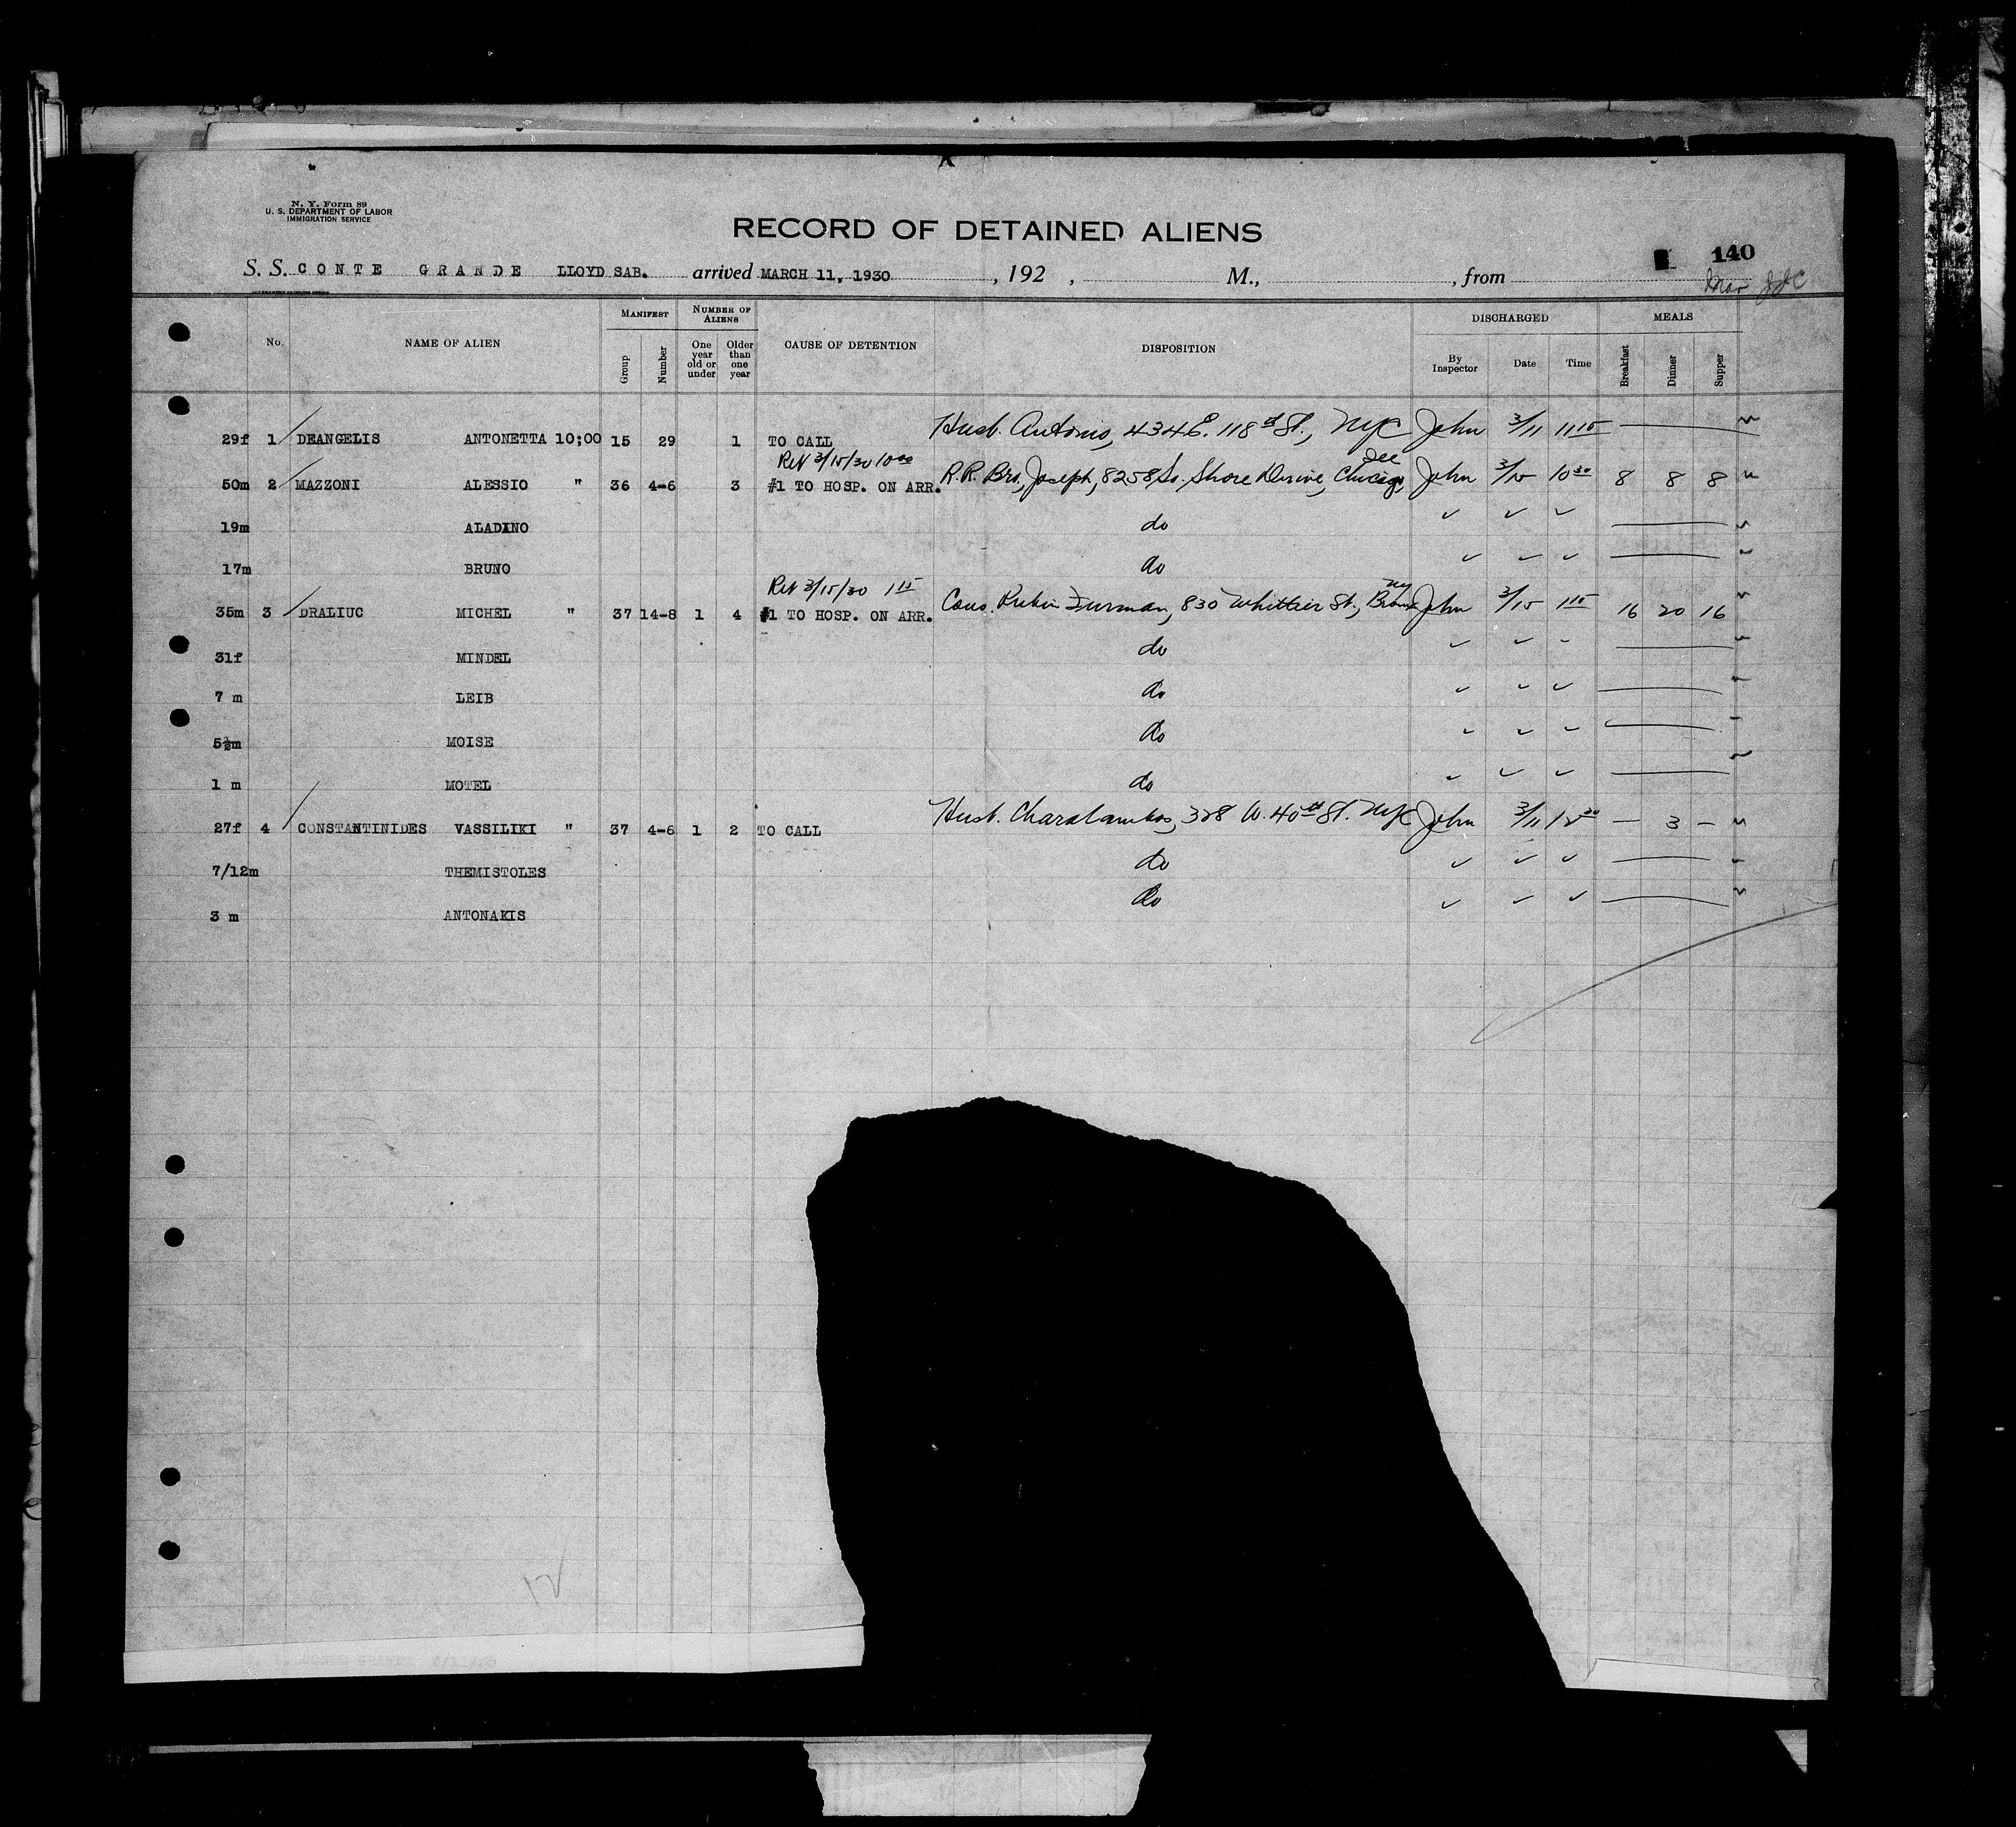 N. Y. Form 89
U. S. DEPARTMENT OF LABOR
IMMIGRATION SERVICE
RECORD OF DETAINED ALIENS
140
S. S. CONTE GRANDE LLOYD SAB. arrived MARCH 11, 1930, 192 , M., , from
Mar JJC
No. NAME OF ALIEN MANIFEST Group Number NUMBER OF ALIENS One year old or under Older than one year CAUSE OF DETENTION DISPOSITION DISCHARGED By Inspector Date Time MEALS Breakfast Dinner Supper
29f 1 DEANGELIS ANTONETTA 10;00 15 29 1 TO CALL Husb. Antonio, 434 E. 118th St., NYC John 3/11 11 15
Rel 3/15/30 10 00
50m 2 MAZZONI ALESSIO " 36 4-6 3 #1 TO HOSP. ON ARR. R.R. Bro, Joseph, 8258 So. Shore Drive, Chicago, Ill John 3/15 10 30 8 8 8
19m ALADINO do
17m BRUNO do
Rel 3/15/30 1 15
35m 3 DRALIUC MICHEL " 37 14-8 1 4 #1 TO HOSP. ON ARR. Cous. Rubin Furman, 830 Whittier St., Bronx NY John 3/15 1 15 16 20 16
31f MINDEL do
7 m LEIB do
5½m MOISE do
1 m MOTEL do
27f 4 CONSTANTINIDES VASSILIKI " 37 4-6 1 2 TO CALL Husb. Charalambos, 328 W. 40th St. NYC John 3/11 12 30 — 3 —
7/12m THEMISTOLES do
3 m ANTONAKIS do
12